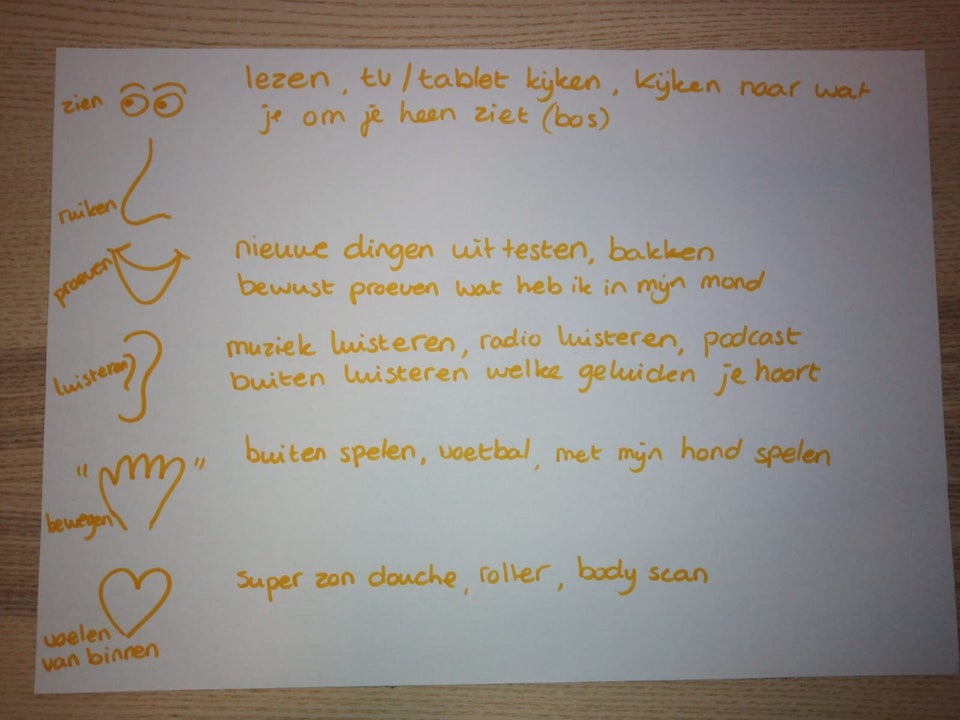 zien
lezen, tv/tablet kijken, kijken naar wat
je om je heen ziet (bos)
ruiken
proeven
nieuwe dingen uit testen, bakken
bewust proeven wat heb ik in mijn mond
luisteren
muziek luisteren, radio luisteren, podcast
buiten luisteren welke geluiden je hoort
bewegen
buiten spelen, voetbal, met mijn hond spelen
voelen
van binnen
super zon douche, roller, body scan